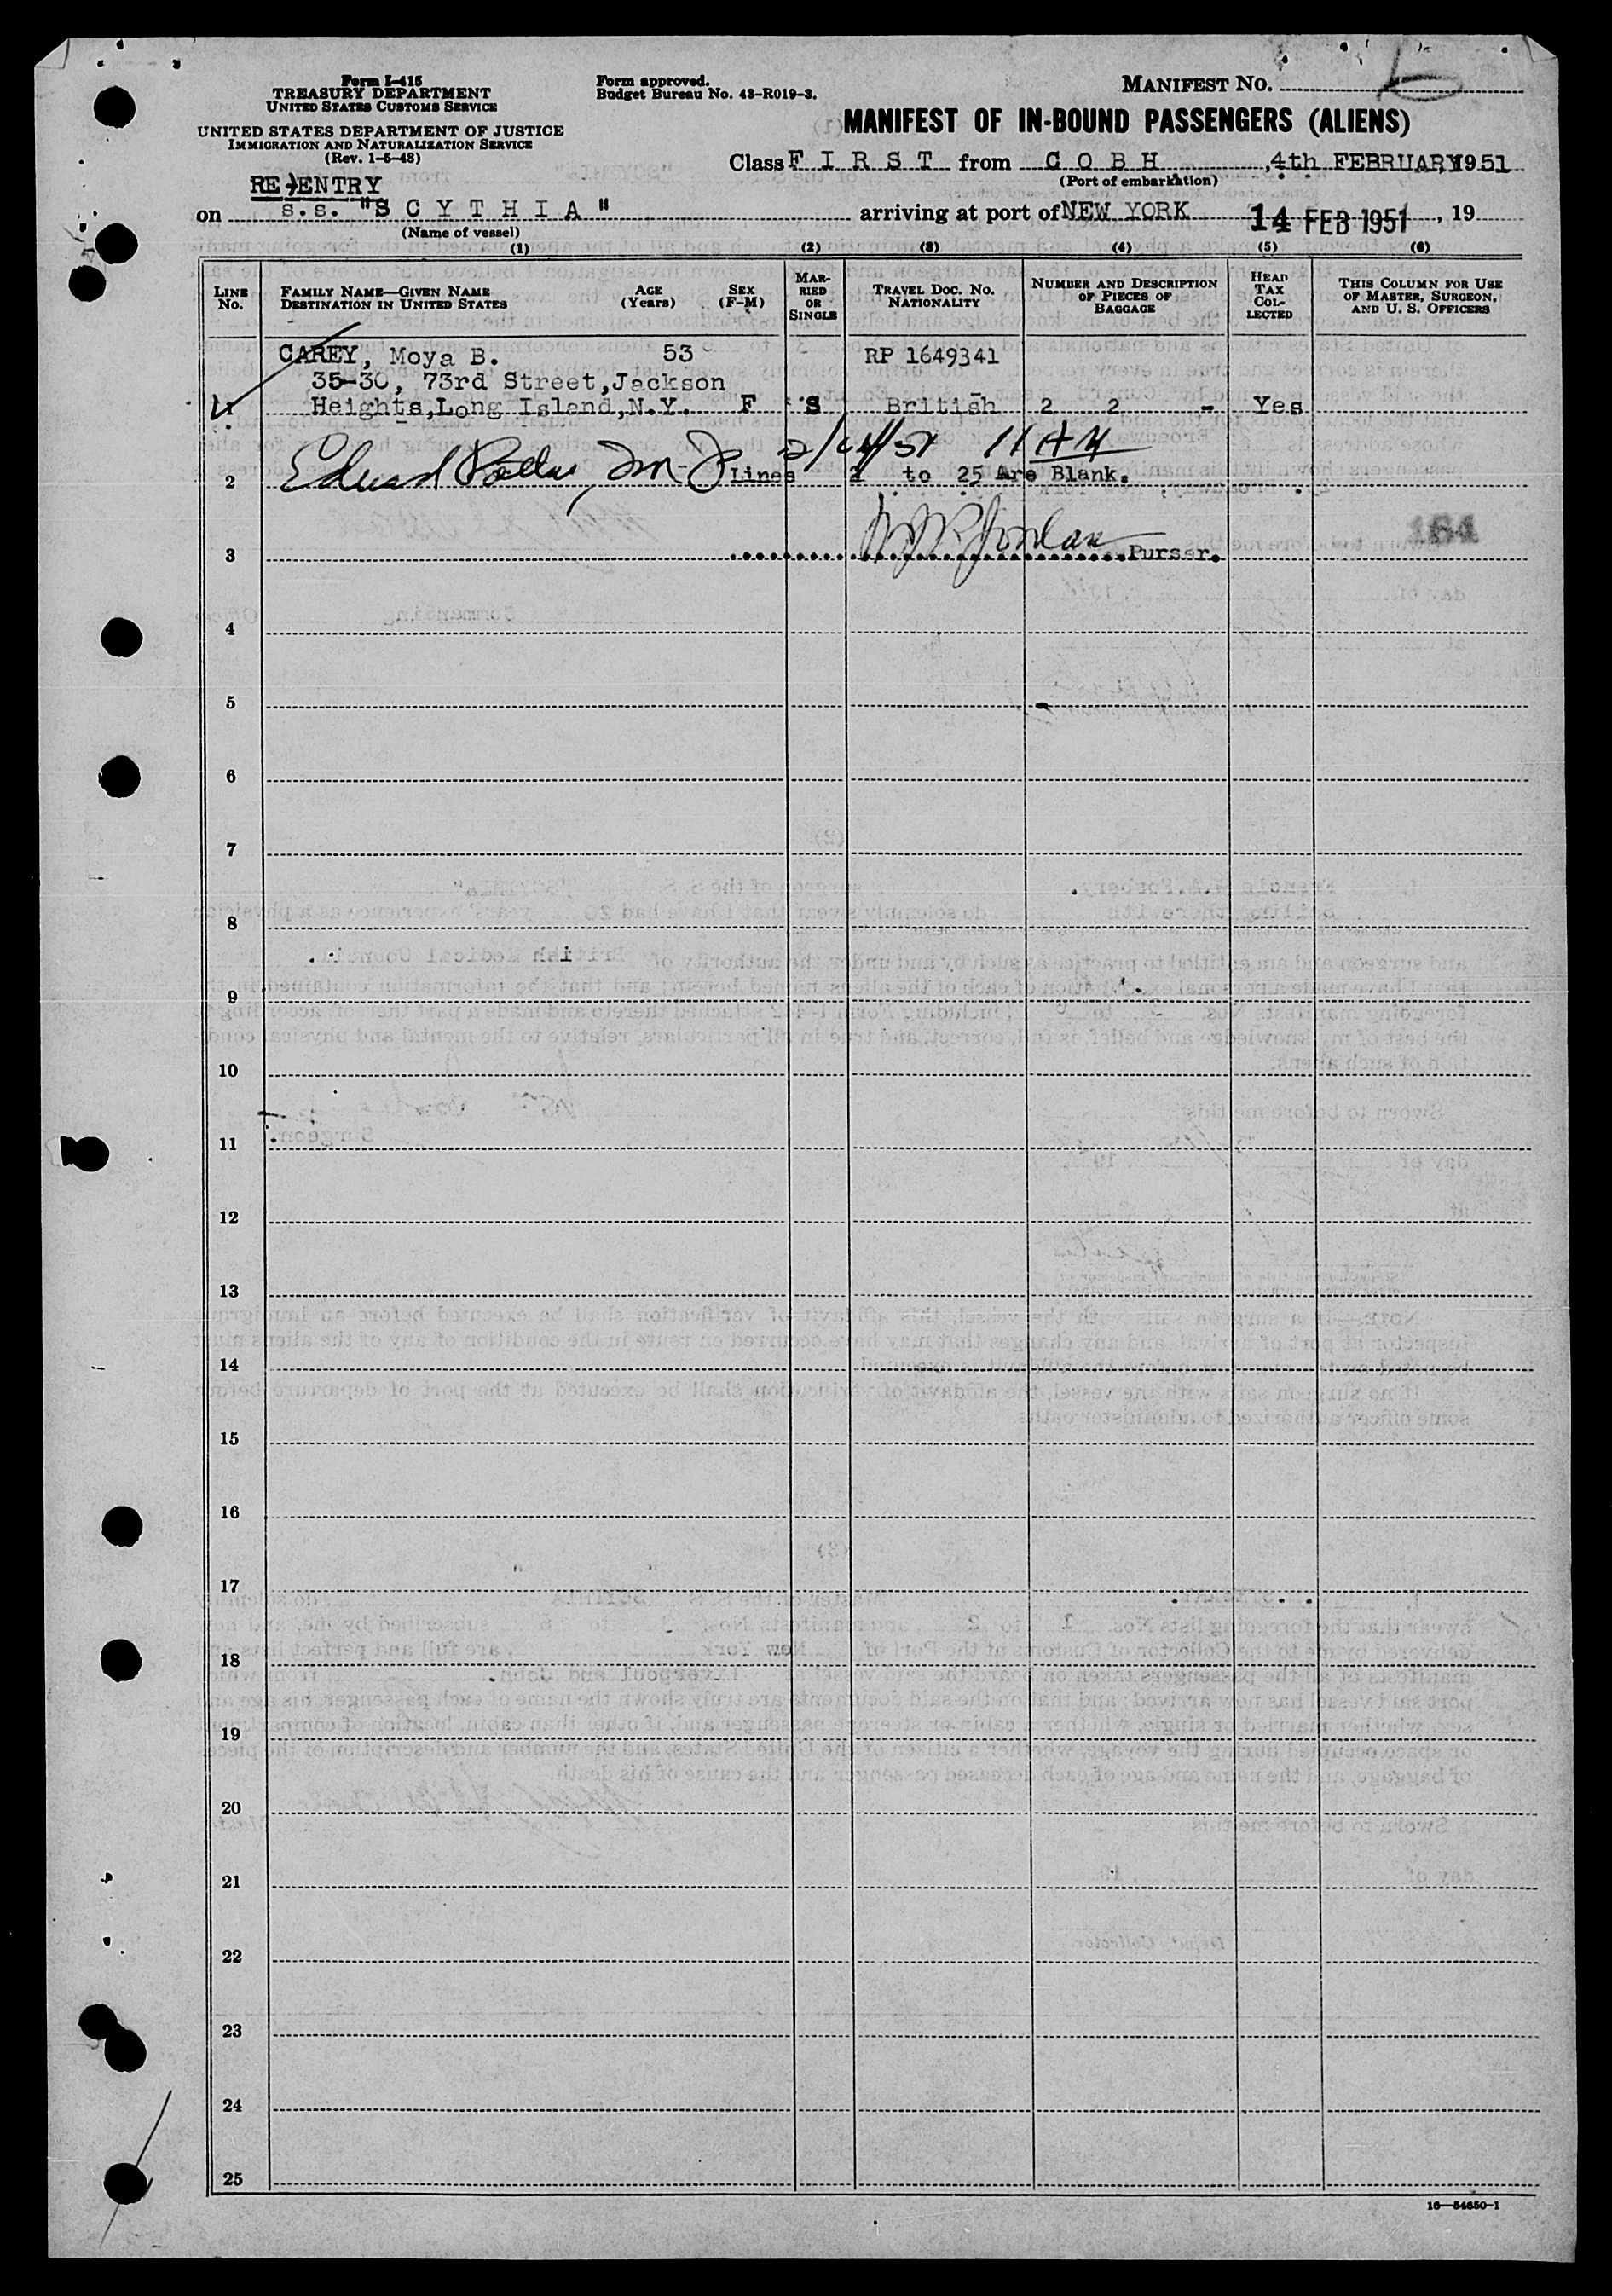 Form I-415
TREASURY DEPARTMENT
UNITED STATES CUSTOMS SERVICE
UNITED STATES DEPARTMENT OF JUSTICE
IMMIGRATION AND NATURALIZATION SERVICE
(Rev. 1-5-48)
Form approved.
Budget Bureau No. 43-R019-3.
MANIFEST NO.
MANIFEST OF IN-BOUND PASSENGERS (ALIENS)
Class F I R S T from C O B H, 4th FEBRUARY, 1951
(Port of embarkation)
RE-ENTRY
on s.s. "S C Y T H I A" arriving at port of NEW YORK 14 FEB 1951, 19
(Name of vessel)
(1) (2) (3) (4) (5) (6)
LINE No. FAMILY NAME—GIVEN NAME DESTINATION IN UNITED STATES AGE (Years) SEX (F-M) MARRIED OR SINGLE TRAVEL DOC. NO. NATIONALITY NUMBER AND DESCRIPTION OF PIECES OF BAGGAGE HEAD TAX COLLECTED THIS COLUMN FOR USE OF MASTER, SURGEON, AND U. S. OFFICERS
CAREY, Moya B. 53 RP 1649341
35-30, 73rd Street, Jackson
1 Heights, Long Island, N.Y. F S British 2 2 - Yes
2/14/51 11 AM
2 Lines 2 to 25 Are Blank.
164
3 Purser.
4
5
6
7
8
9
10
11
12
13
14
15
16
17
18
19
20
21
22
23
24
25
16—54650-1